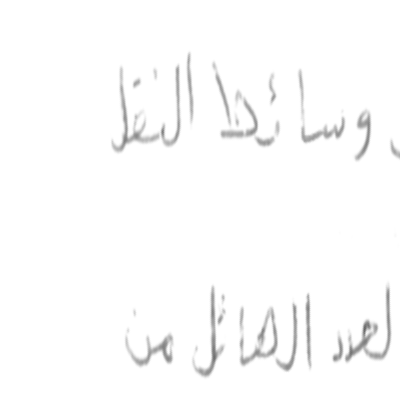 وسائط النقل
لعدد الهائل من